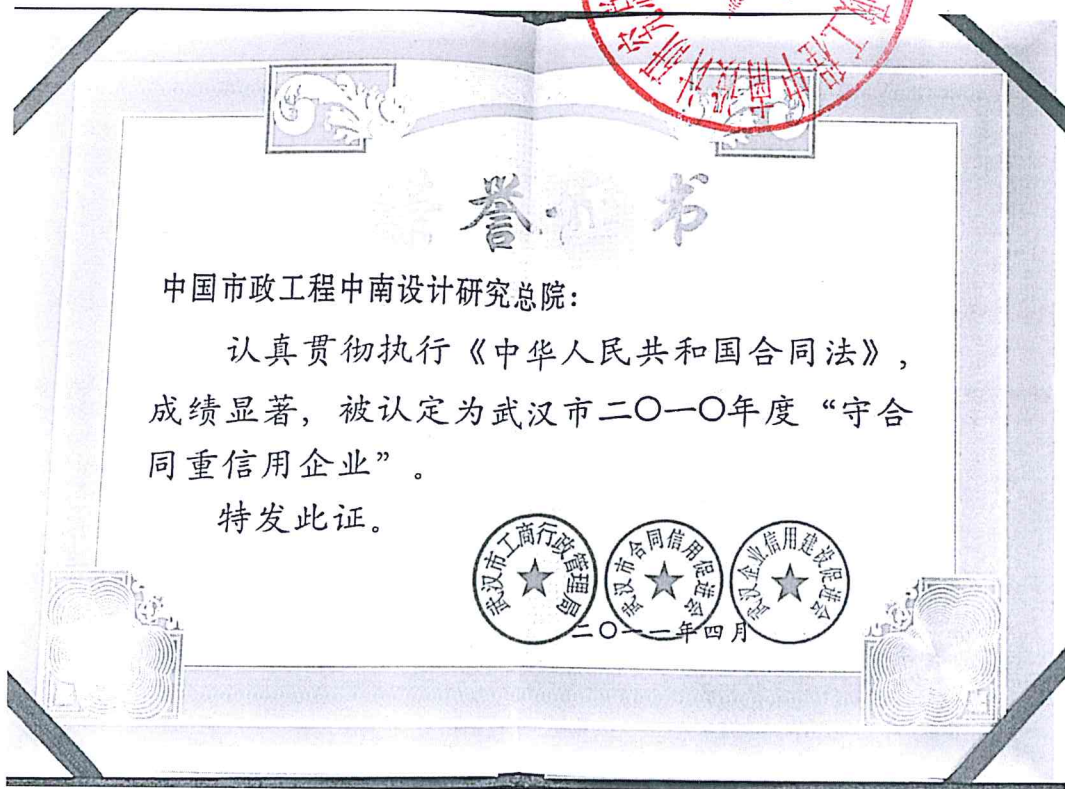 设计研究
中南
政工程
荣誉证书
中国市政工程中南设计研究总院：
认真贯彻执行《中华人民共和国合同法》，
成绩显著，被认定为武汉市二〇一〇年度“守合
同重信用企业”。
特发此证。
武汉市工商行政管理局
武汉市合同信用促进会
武汉企业信用建设促进会
二〇一一年四月